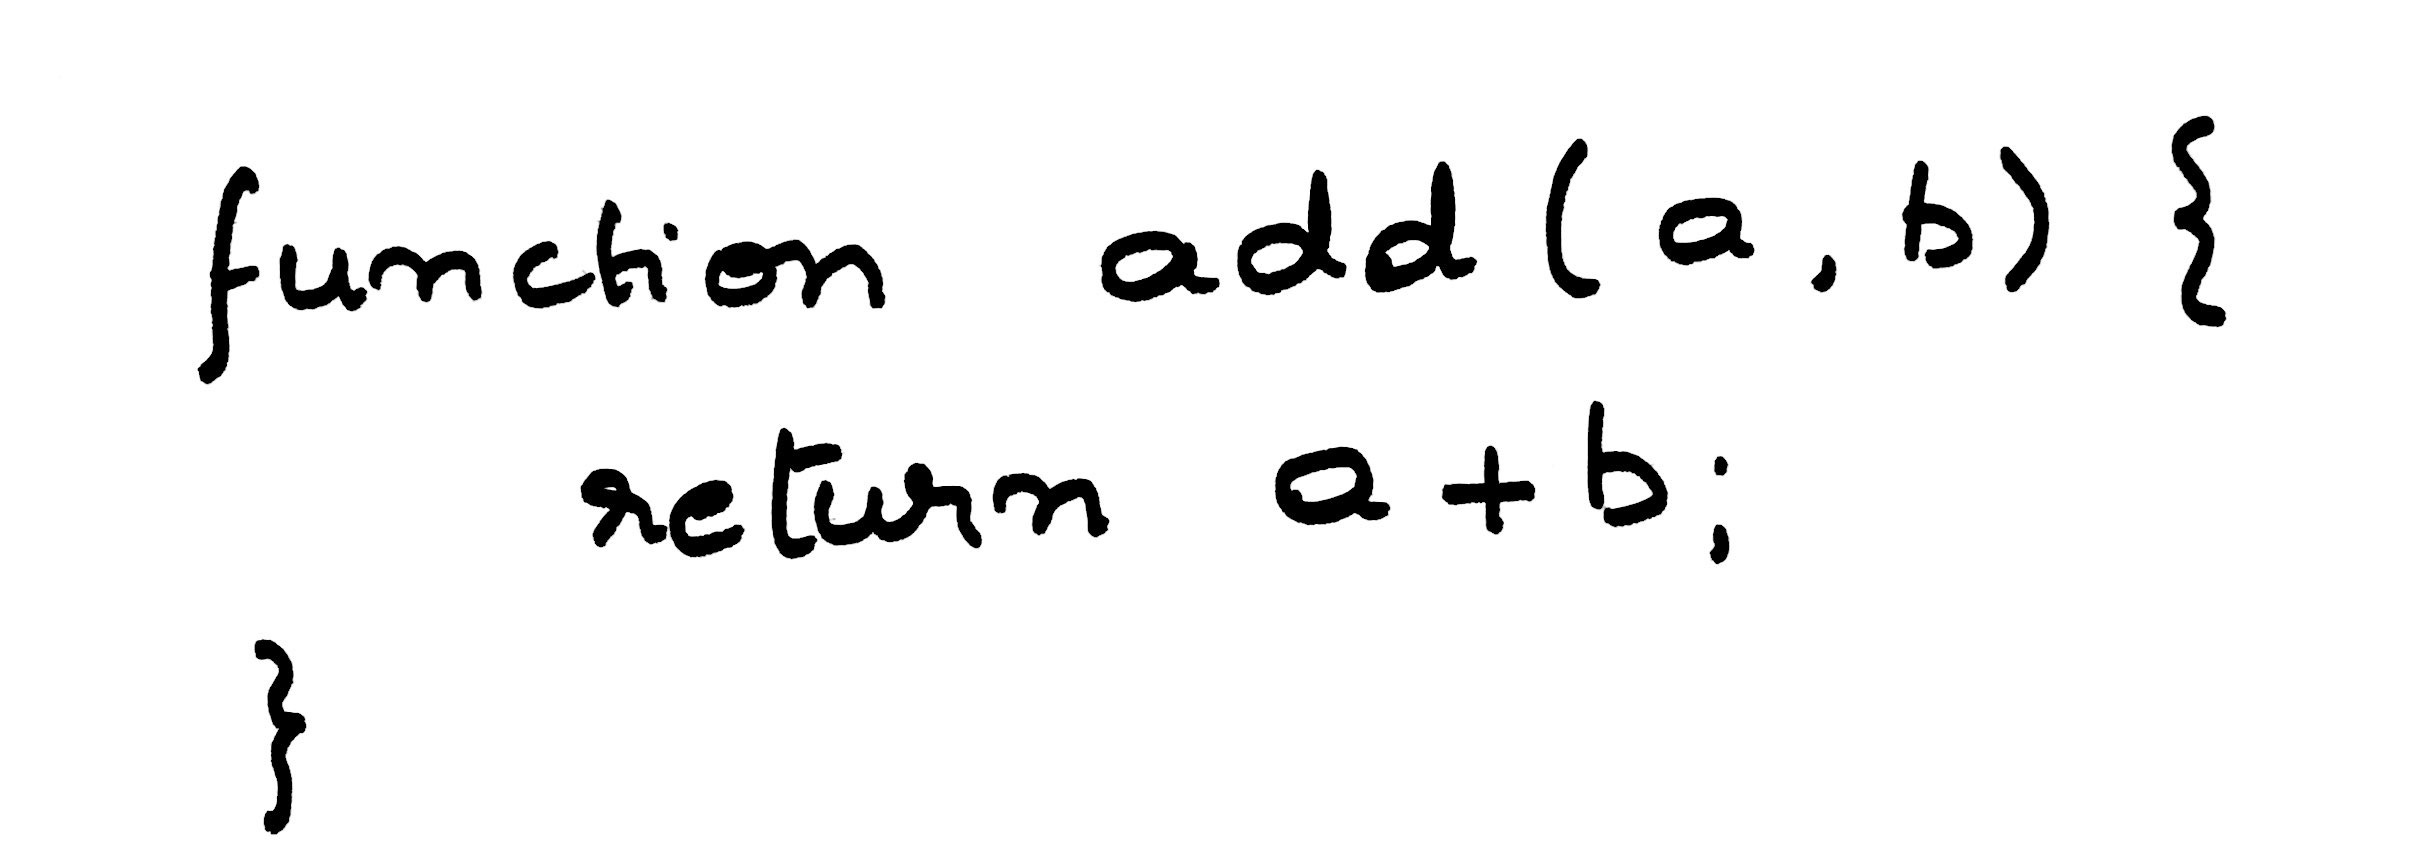 function add(a, b) {
return a+b;
}